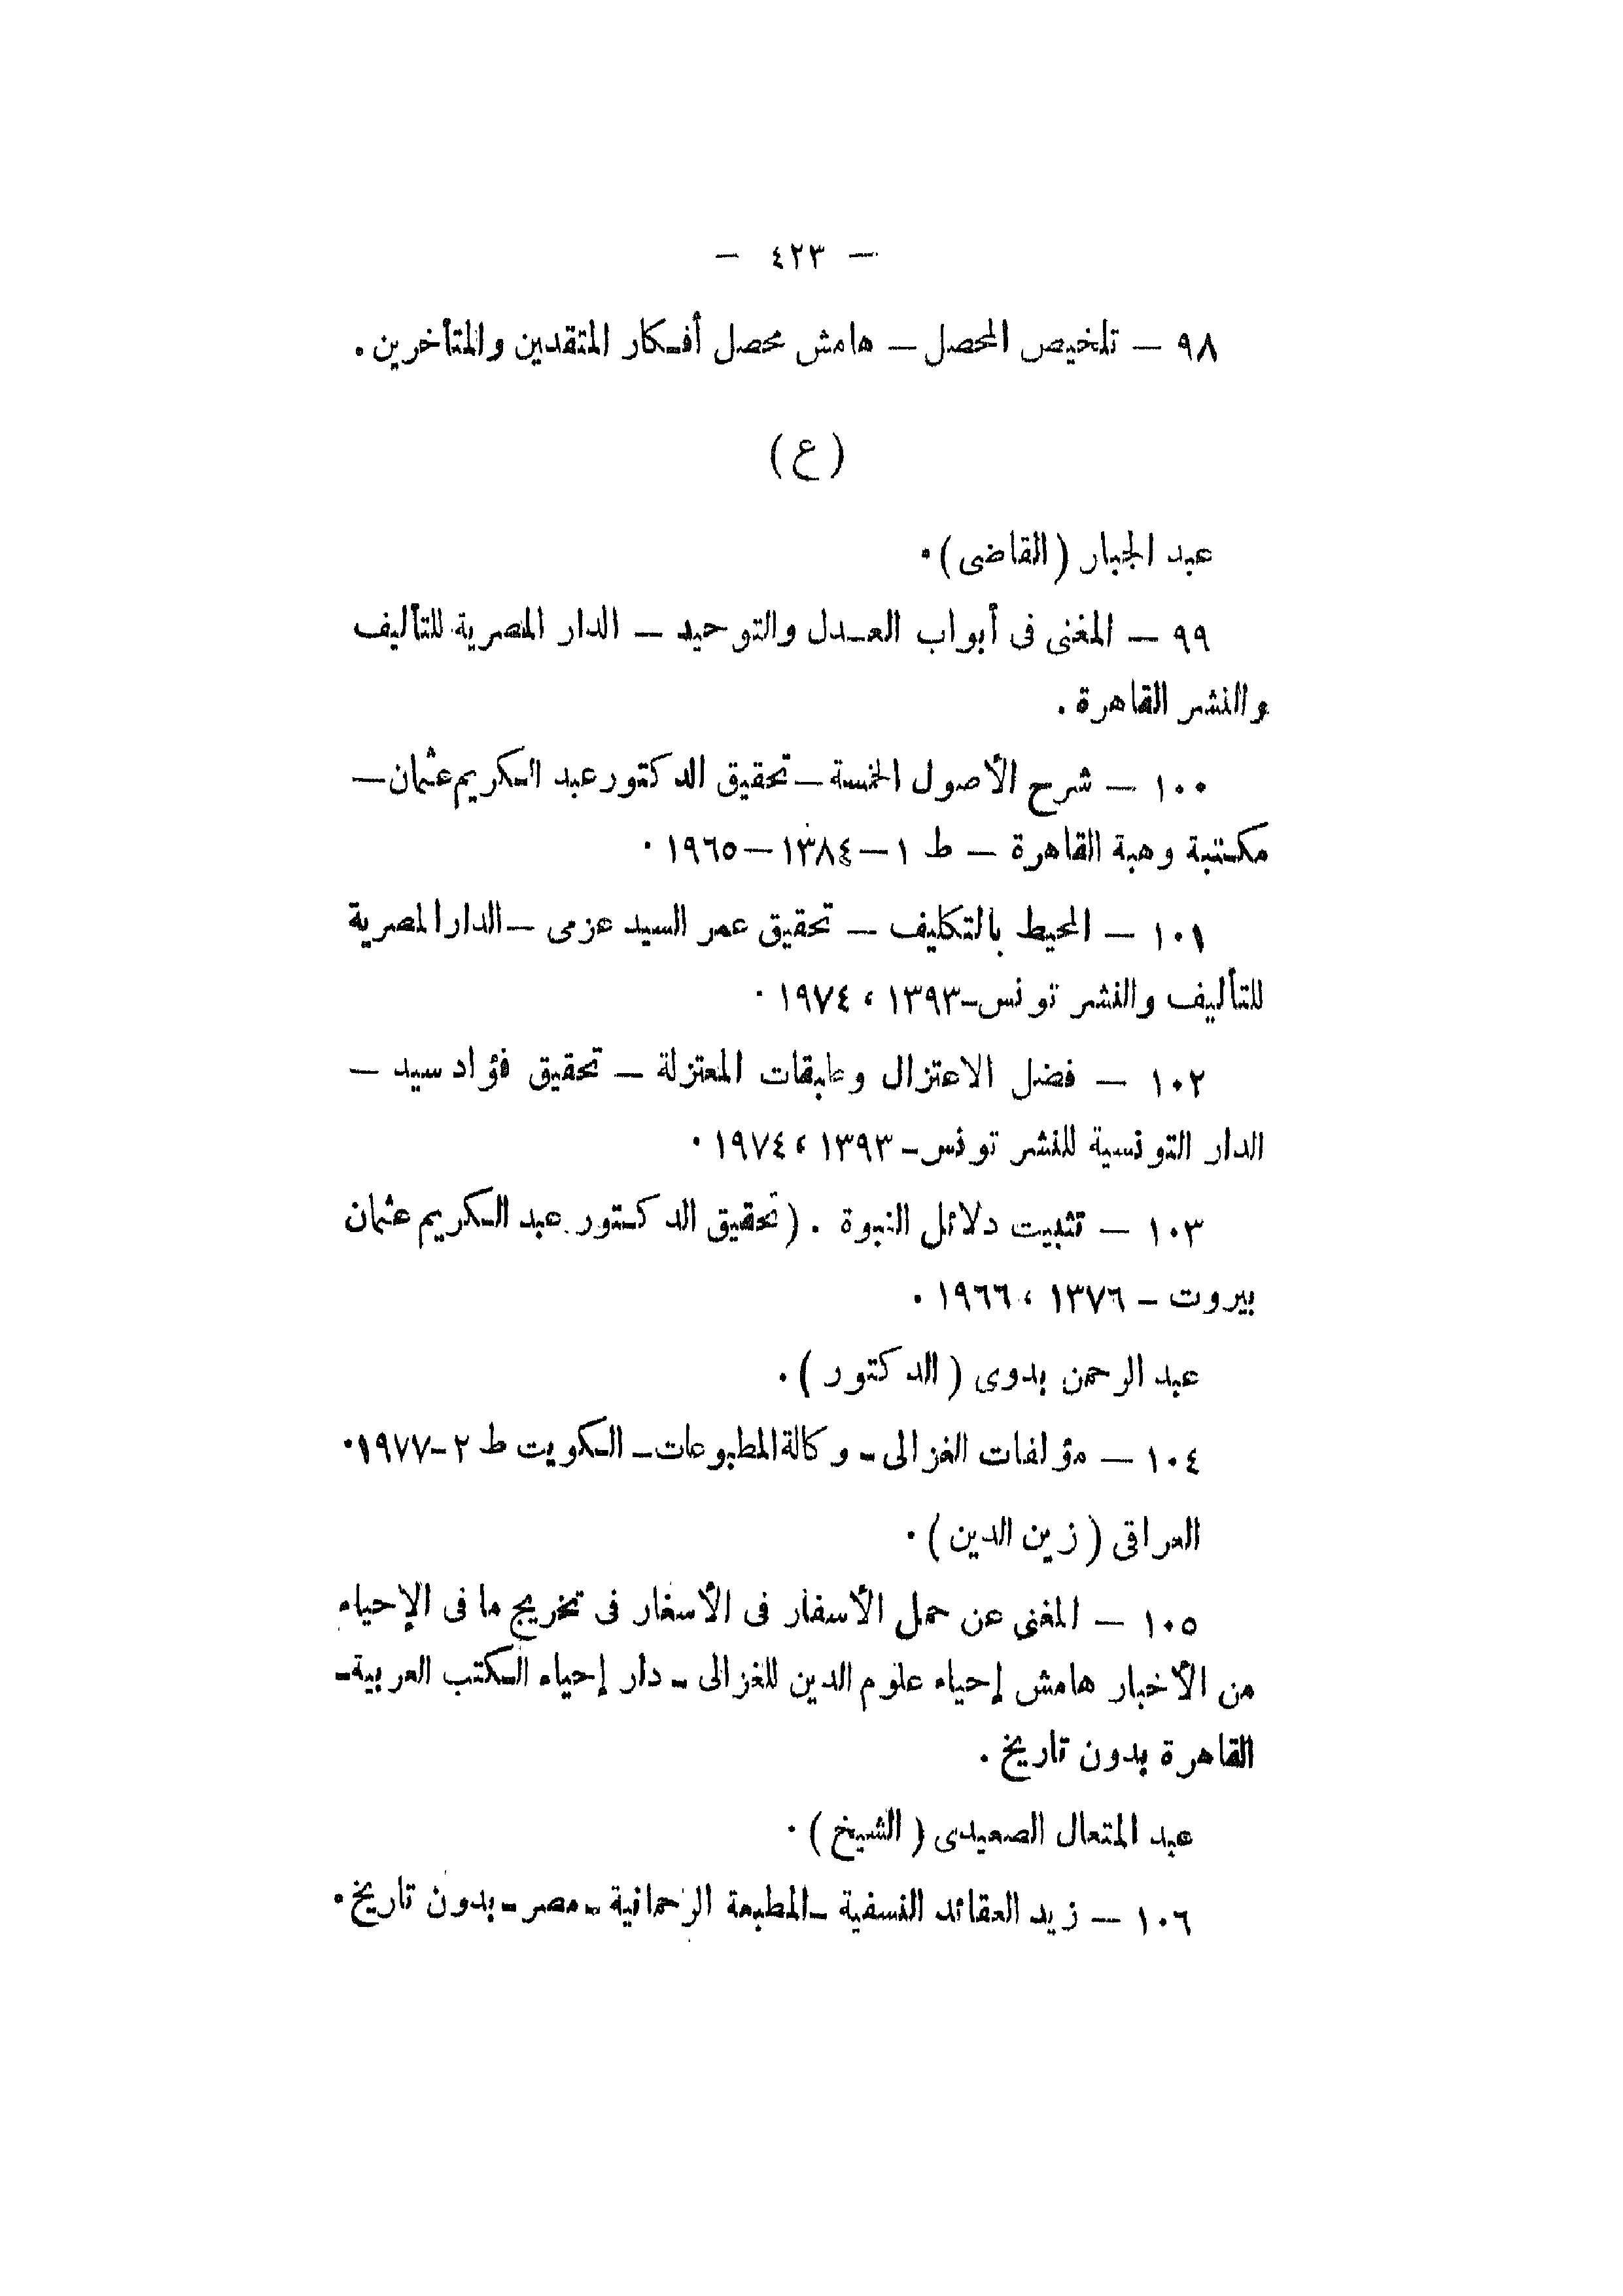 — ٤٢٣ —
٩٨ — تلخيص المحصل — هامش محصل أفكار المتقدين والمتأخرين .
( ع )
عبد الجبار ( القاضى ) .
٩٩ — المغنى فى أبواب العدل والتوحيد — الدار المصرية للتأليف
والنشر القاهرة .
١٠٠ — شرح الأصول الخمسة — تحقيق الدكتور عبد الكريم عثمان —
مكتبة وهبة القاهرة — ط ١ — ١٣٨٤ — ١٩٦٥ .
١٠١ — المحيط بالتكليف — تحقيق عمر السيد عزمى — الدار المصرية
للتأليف والنشر تونس - ١٣٩٣ ، ١٩٧٤ .
١٠٢ — فضل الاعتزال وطبقات المعتزلة — تحقيق فؤاد سيد —
الدار التونسية للنشر تونس - ١٣٩٣ ، ١٩٧٤ .
١٠٣ — تثبيت دلائل النبوة . ( تحقيق الدكتور عبد الكريم عثمان
بيروت - ١٣٧٦ ، ١٩٦٦ .
عبد الرحمن بدوى ( الدكتور ) .
١٠٤ — مؤلفات الغزالى - وكالة المطبوعات - الكويت ط ٢ - ١٩٧٧ .
العراقى ( زين الدين ) .
١٠٥ — المغنى عن حمل الأسفار فى الأسغار فى تخريج ما فى الإحياء
من الأخبار هامش إحياء علوم الدين للغزالى - دار إحياء الكتب العربية -
القاهرة بدون تاريخ .
عبد المتعال الصعيدى ( الشيخ ) .
١٠٦ — زيد العقائد النسفية - المطبعة الرحمانية - مصر - بدون تاريخ .